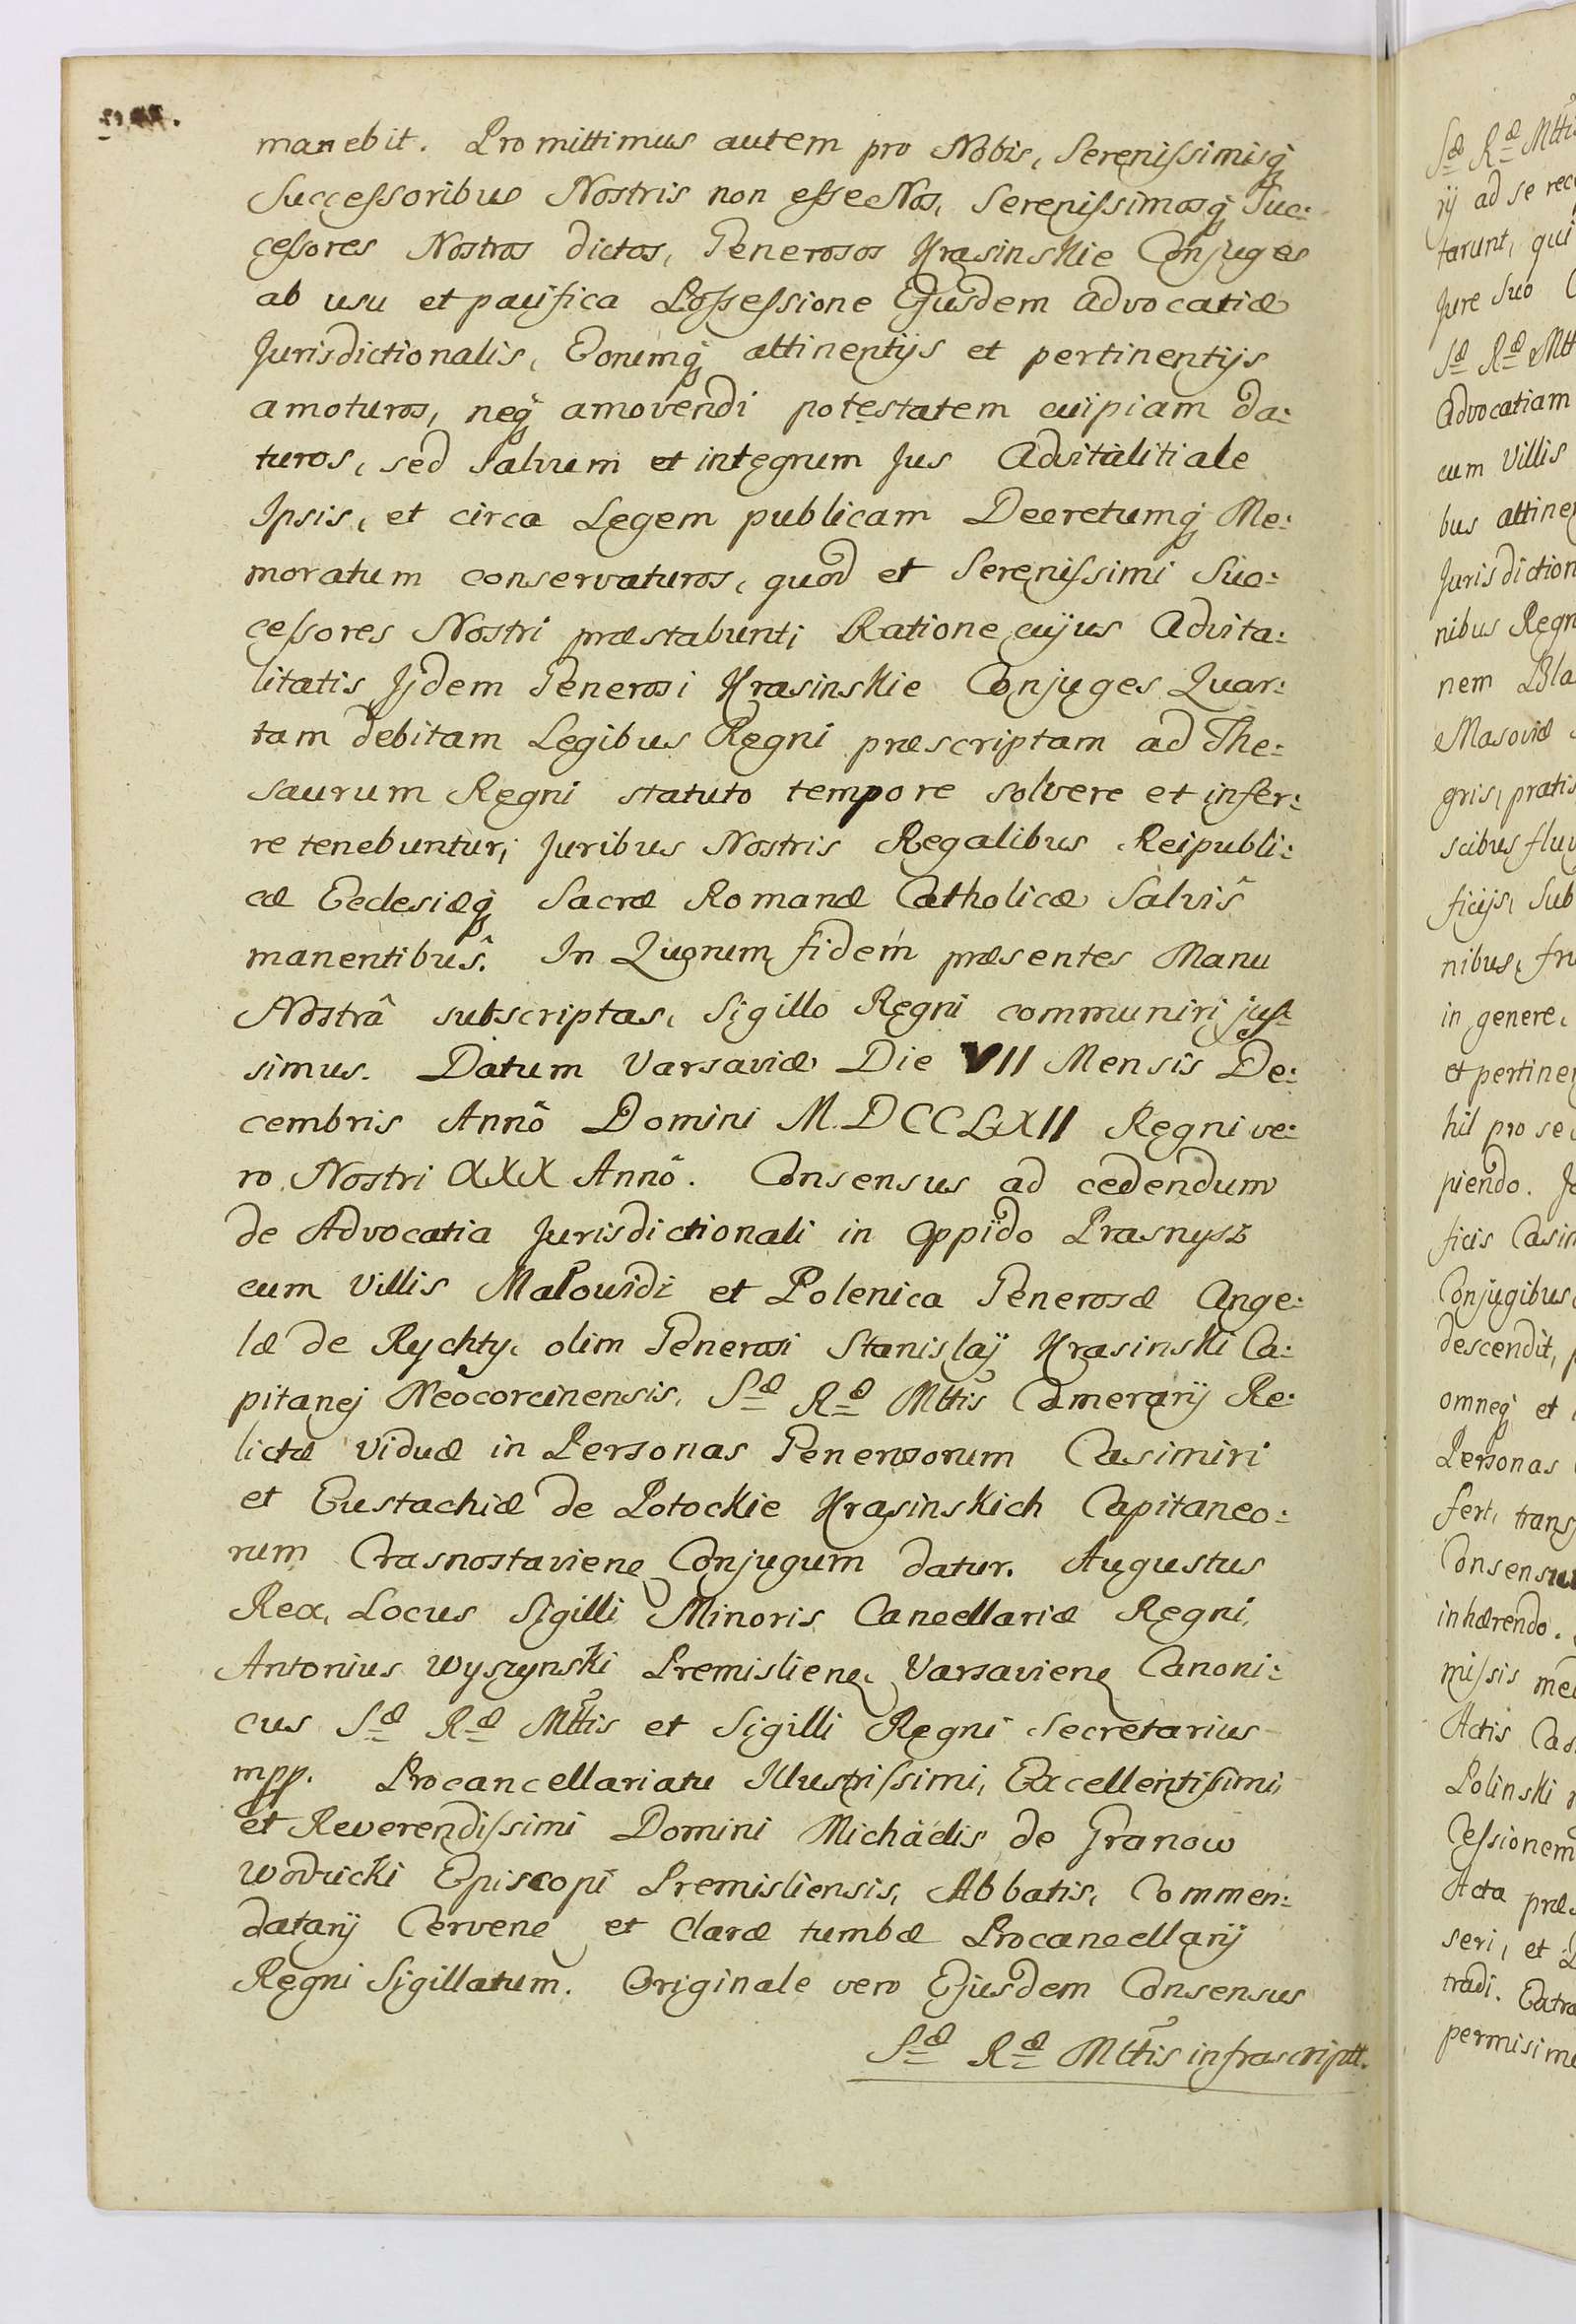 manebit. Promittimus autem pro Nobis, Serenissimisq̨
Successoribus Nostris non esse Nos, Serenissimosq̨ Suc:
cessores Nostros dictos, Generosos Krasinskie Conjuges
ab usu et pacifica Possessione Ejusdem Advocatiæ
Jurisdictionalis, Eorumq̨ attinentijs et pertinentijs
amoturos, neq̨ amovendi potestatem cuipiam da:
turos, sed Salvum et integrum Jus Advitalitiale
Ipsis, et circa Legem publicam Decretumq̨ Me:
moratum conservaturos, quod et Serenissimi Suc:
cessores Nostri præstabunt; Ratione cujus Advita:
litatis Ijdem Generosi Krasinskie Conjuges Quar:
tam debitam Legibus Regni præscriptam ad The:
saurum Regni statuto tempore solvere et infer:
re tenebuntur; Juribus Nostris Regalibus Reipubli:
cæ Ecclesiæq̨ Sacræ Romanæ Catholicæ Salvis
manentibus. In Quorum fidem præsentes Manu
Nostrâ subscriptas, Sigillo Regni communiri jus:
simus. Datum Varsaviæ Die VII Mensis De:
cembris Annô Domini M.DCCLXII Regni ve:
ro Nostri XXX Annô. Consensus ad cedendum
de Advocatia Jurisdictionali in Oppido Prasnysz
cum Villis Małowidz et Polenica Generosæ Ange:
læ de Rychty, olim Generosi Stanislaj Krasinski Ca:
pitanej Neocorcinensis, Sæ Ræ Mttis Camerarij Re:
lictæ Viduæ in Personas Generosorum Casimiri
et Eustachiæ de Potockie Krasinskich Capitaneo:
rum Crasnostaviens Conjugum datur. Augustus
Rex, Locus Sigilli Minoris Cancellariæ Regni,
Antonius Wyszynski Premisliens, Varsaviens Canoni:
cus Sæ Ræ Mttis et Sigilli Regni Secretarius
mpp. Procancellariatu Illustrissimi, Excellentissimi,
et Reverendissimi Domini Michaelis de Granow
Wodzicki Episcopi Premisliensis, Abbatis, Commen:
datarij Cervene et Claræ tumbæ Procancellarij
Regni Sigillatum. Originale vero Ejusdem Consensus
Sæ Ræ Mttis infrascriptt.
Sæ Ræ Mttis
rij ad se rec
tarunt, qui
Jure Suo
Sæ Ræ Mtt
Advocatiam
cum Villis
bus attine
Jurisdiction
nibus Regn
nem Bla
Masoviæ
gris, pratis
scibus fluv
ficijs, Sub
nibus, fru
in genere,
et pertinen
hil pro se
piendo.
ficis Casim
Conjugibus
descendit,
omneq̨ et
Personas
fert, trans
Consensu
inhærendo.
missis me
Actis Cas
Polinski
Cessionem
Acta præ
seri, et
tradi. Extra
permisimu